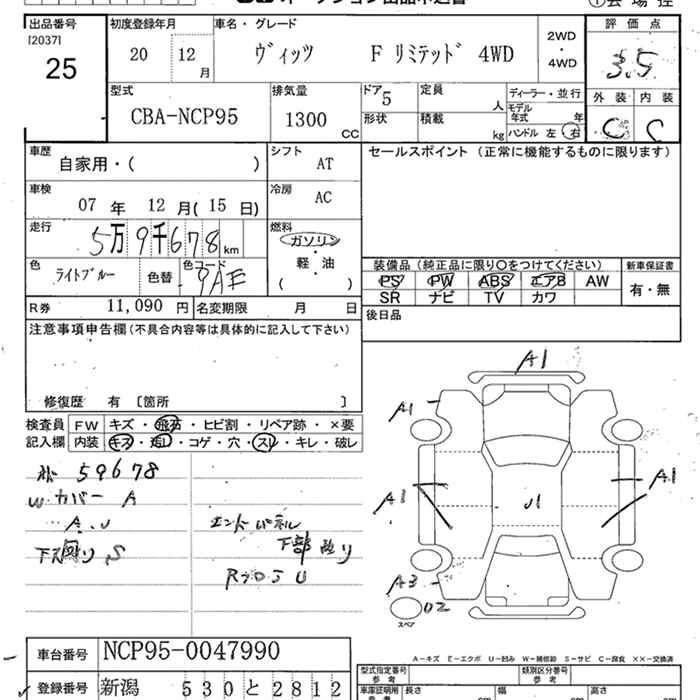 出品番号
[2037]
25
初度登録年月
20 12 月
車名・グレード
ヴィッツ F リミテッド 4WD
2WD
・
4WD
評価点
3.5
外装 内装
C C
型式
CBA-NCP95
排気量
1300 cc
ドア 5
形状
定員 人
積載 kg
ディーラー・並行
モデル年式 年
ハンドル 左 右
車歴
自家用・( )
シフト AT
車検
07 年 12 月( 15 日)
冷房 AC
走行
5万9千678 km
燃料
ガソリン
軽・油
( )
色 ライトブルー
色替
色コード
R券 11,090 円
名変期限 月 日
セールスポイント (正常に機能するものに限ります)
装備品 (純正品に限り○をつけてください)
新車保証書
PS PW ABS エアB AW
有・無
SR ナビ TV カワ
後日品
注意事項申告欄(不具合内容等は具体的に記入して下さい)
修復歴 有 [箇所 ]
検査員
記入欄
FW キズ・飛石・ヒビ割・リペア跡・×要
内装 キズ・汚れ・コゲ・穴・スレ・キレ・破レ
59678
W カバー A
A.U
下回り S
エンドパネル
下部
A1
A1
A1
A1
U1
A3
スペア
車台番号 NCP95-0047990
登録番号 新潟 530 と 2812
A-キズ E-エクボ U-凹み W-補修跡 S-サビ C-腐食 XX-交換済
型式指定番号
参考
類別区分番号
参考
車庫証明用
長さ cm
幅 cm
高さ cm